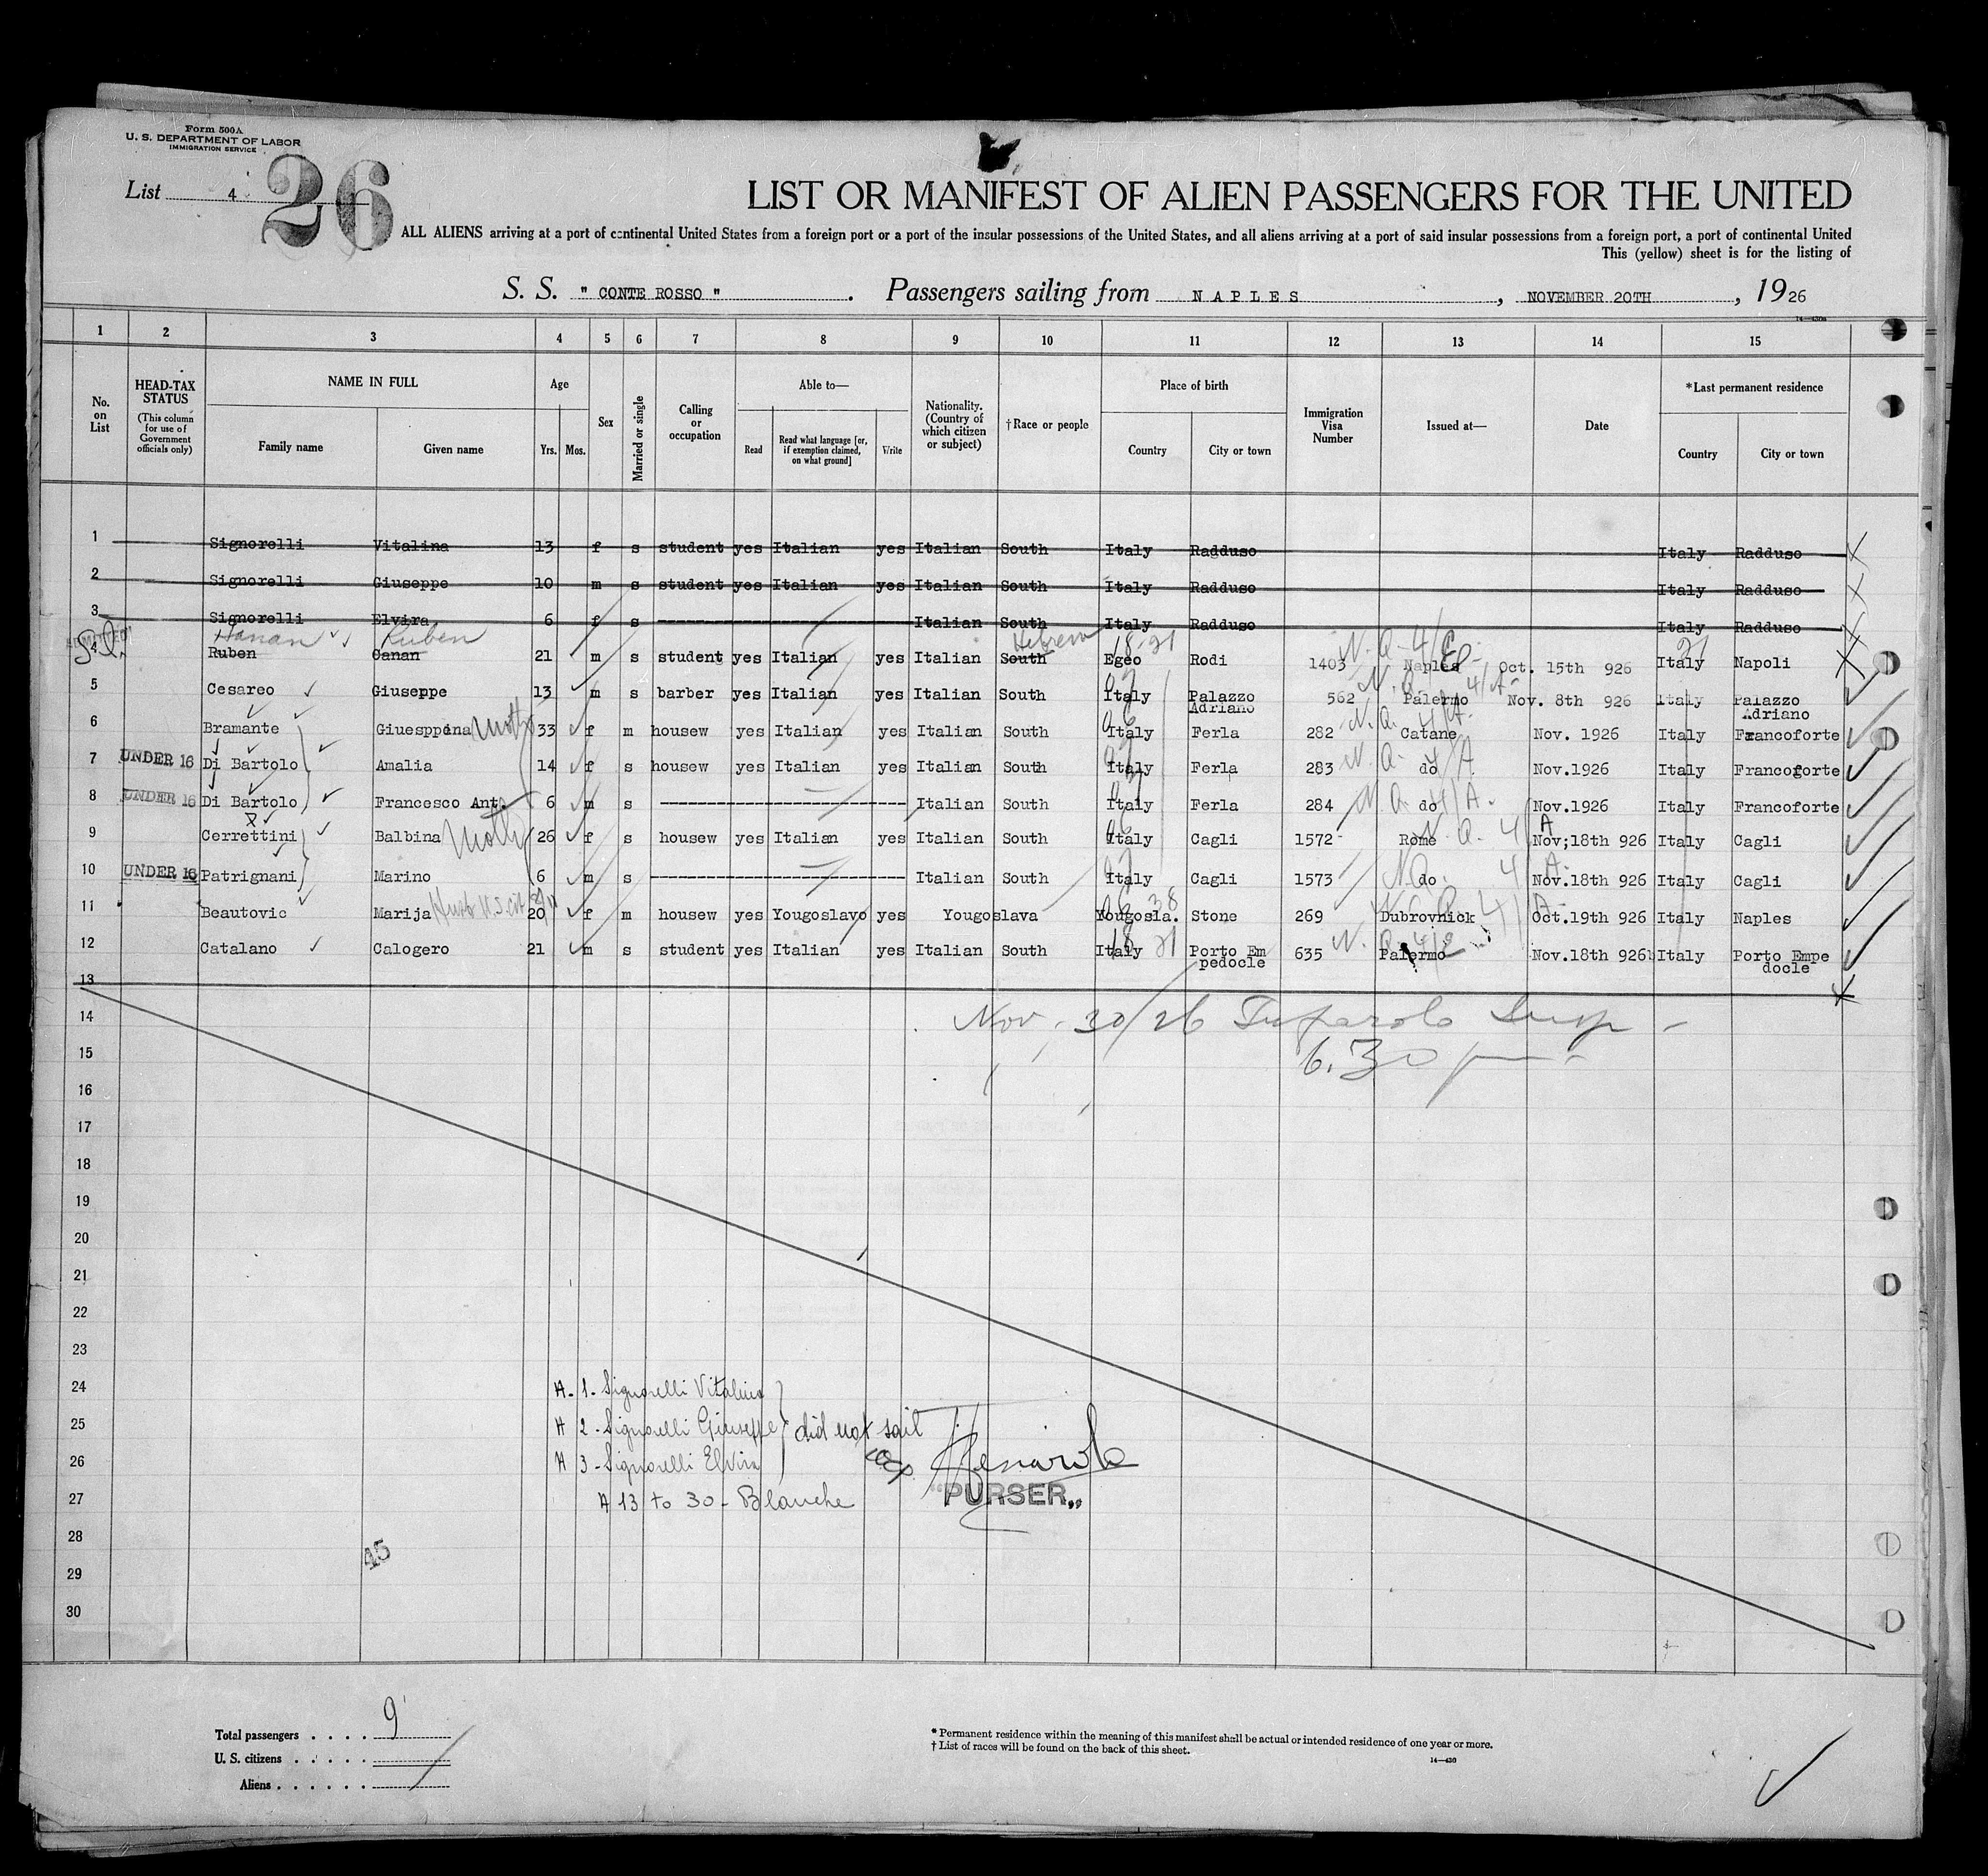 Form 500A
U. S. DEPARTMENT OF LABOR
IMMIGRATION SERVICE
List 4
26
LIST OR MANIFEST OF ALIEN PASSENGERS FOR THE UNITED
ALL ALIENS arriving at a port of continental United States from a foreign port or a port of the insular possessions of the United States, and all aliens arriving at a port of said insular possessions from a foreign port, a port of continental United
This (yellow) sheet is for the listing of
S. S. " CONTE ROSSO " . Passengers sailing from NAPLES , NOVEMBER 20TH , 1926
1 2 3 4 5 6 7 8 9 10 11 12 13 14 15
No. on List
HEAD-TAX STATUS (This column for use of Government officials only)
NAME IN FULL
Family name Given name
Age
Yrs. Mos.
Sex
Married or single
Calling or occupation
Able to—
Read Read what language [or, if exemption claimed, on what ground] Write
Nationality. (Country of which citizen or subject)
†Race or people
Place of birth
Country City or town
Immigration Visa Number
Issued at—
Date
*Last permanent residence
Country City or town
1 Signorelli Vitalina 13 f s student yes Italian yes Italian South Italy Radduso Italy Radduso
2 Signorelli Giuseppe 10 m s student yes Italian yes Italian South Italy Radduso Italy Radduso
3 Signorelli Elvira 6 f s Italian South Italy Radduso Italy Radduso
Hanan Ruben Hebrew 18-21 N.Q-4/C 21
4 Ruben Canan 21 m s student yes Italian yes Italian South Egeo Rodi 1403 Naples Oct. 15th 926 Italy Napoli
5 Cesareo Giuseppe 13 m s barber yes Italian yes Italian South Italy Palazzo Adriano 562 Palermo Nov. 8th 926 Italy Palazzo Adriano
6 Bramante Giuesppina Moth 33 f m housew yes Italian yes Italian South Italy Ferla 282 Catane Nov. 1926 Italy Francoforte
7 UNDER 16 Di Bartolo Amalia 14 f s housew yes Italian yes Italian South Italy Ferla 283 do Nov.1926 Italy Francogorte
8 UNDER 16 Di Bartolo Francesco Ant. 6 m s Italian South Italy Ferla 284 do Nov.1926 Italy Francoforte
9 Cerrettini Balbina Moth 26 f s housew yes Italian yes Italian South Italy Cagli 1572 Rome Nov;18th 926 Italy Cagli
10 UNDER 16 Patrignani Marino 6 m s Italian South Italy Cagli 1573 do Nov.18th 926 Italy Cagli
11 Beautovic Marija 20 f m housew yes Yougoslavo yes Yougoslava Yougosla. Stone 269 Dubrovnick Oct.19th 926 Italy Naples
12 Catalano Calogero 21 m s student yes Italian yes Italian South Italy Porto Em pedocle 635 Palermo Nov.18th 926 Italy Porto Empe docle
13
14
Nov. 30/26
15
6.30 pm
16
17
18
19
20
21
22
23
24 A. 1. Signorelli Vitalina
25 A 2 - Signorelli Giuseppe did not sail
26 A 3 - Signorelli Elvira
27 A 13 to 30 - Blanche
"PURSER"
28
45
29
30
Total passengers . . . . 9
U. S. citizens . . . . .
Aliens . . . . . .
* Permanent residence within the meaning of this manifest shall be actual or intended residence of one year or more.
† List of races will be found on the back of this sheet.
14—430